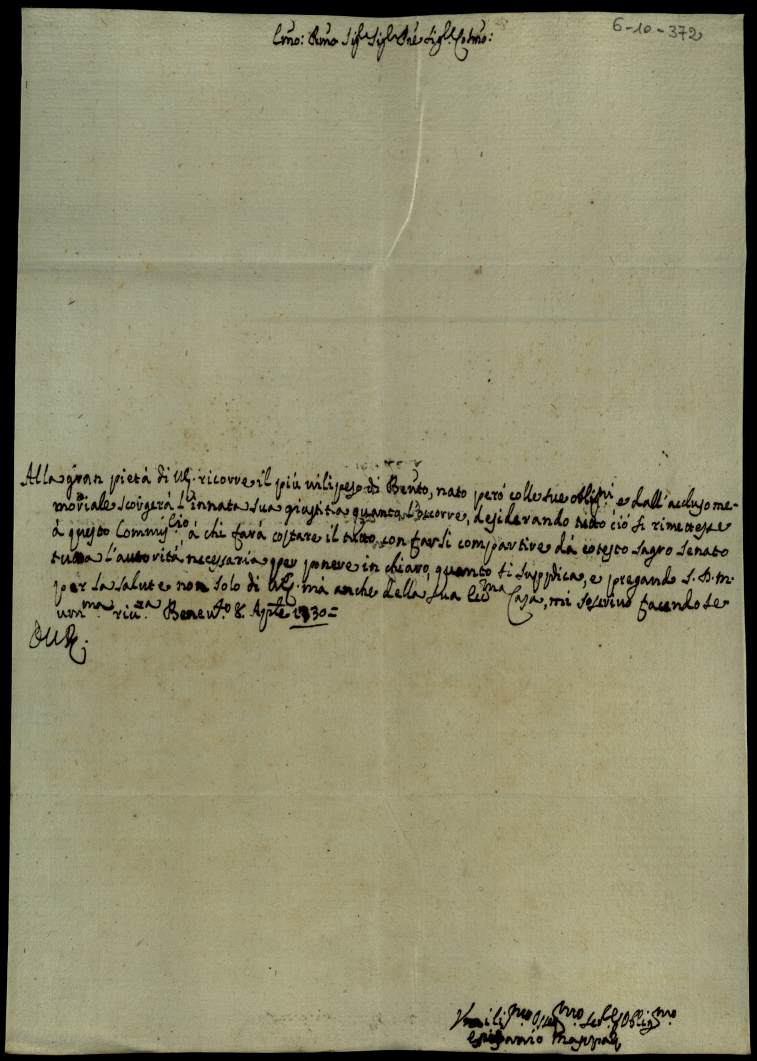 6-10-372
Emo: Rmo Sigr Sigr Pne Sigr Colmo:
Alla gran pietà di VE. ricorre il più vilipeso di Bento, nato però colle sue obligni e dall'acluso me-
moriale scorgerà l'innata sua giustitia quanto l'occorre, desiderando tutto ciò si rimettesse
à questo Commissio à chi farà costare il tutto, con farsi compartire da cotesto Sagro Senato
tutta l'autorità necessaria per ponere in chiaro, quanto si suppdica, e pregando S. D. M.
per la salute non solo di VE. mà anche della sua Eccma Casa, mi soscrivo facendole
umma riuza. Benevto 8. Aple 1730=
D V E.
Umilismo Osseqmo Sere Obligmo
Epifanio